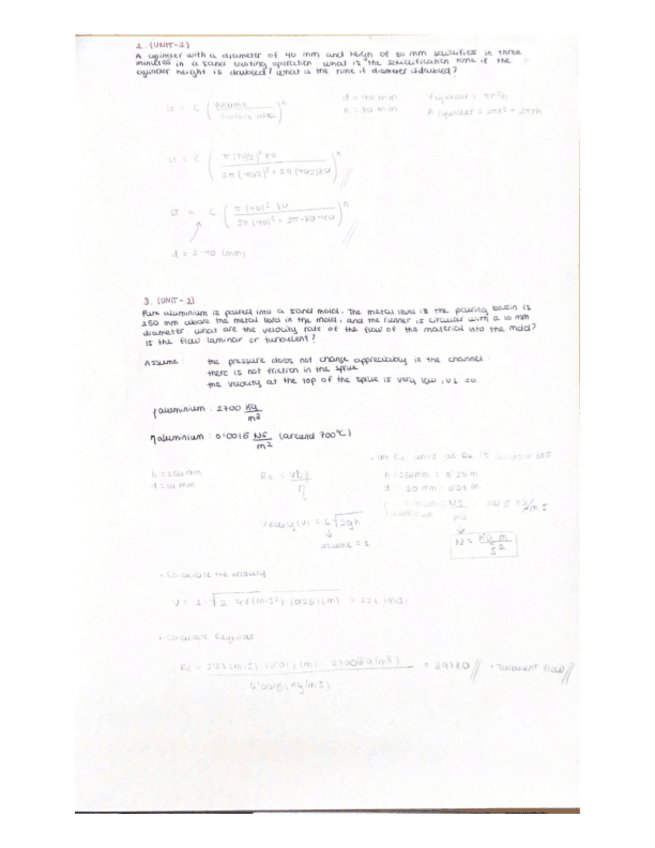 2. (UNIT-2)
A cylinder with a diameter of 40 mm and heigh of 80 mm solidifies in three
minutes in a sand casting operation what is the solidification time if the
cylinder height is doubled? what is the time if diameter is doubled?
ST = C ( volume / surface area )^n
d = 40 mm
h = 80 mm
V cylinder = πr²h
A cylinder = 2πr² + 2πrh
ST = C ( π (40/2)² 80 / 2π (40/2)² + 2π (40/2) 80 )^n //
ST = C ( π (40)² · 80 / 2π (40)² + 2π · 80 · 40 )^n //
d = 2·40 (mm)
3. (UNIT-2)
Pure aluminium is poured into a sand mold. The metal level in the pouring basin is
250 mm above the metal level in the mold, and the runner is circular with a 10 mm
diameter. what are the velocity rate of the flow of the material into the mold?
Is the flow laminar or turbulent?
Assume: the pressure does not change appreciably in the channel.
there is not friction in the sprue
the velocity at the top of the sprue is very low, v1 = 0.
ρ aluminium : 2700 Kg/m³
η aluminium : 0'0015 NS/m² (around 700°C)
h = 250 mm
d = 10 mm
Re = vDρ/η
h = 250mm = 0'25 m
d = 10 mm = 0'01 m
Velocity (v) = c √2gh
assume = 1
N = Kg m/s²
• Calculate the velocity
V = 1 · √2 · 9'8 (m/s²) · (0'25) (m) = 2'21 (m/s)
• Calculate Reynolds
Re = 2'21 (m/s) · (0'01) (m) · 2700 (Kg/m³) / 0'0015 (Kg/ms) = 39780 // → Turbulent flow //